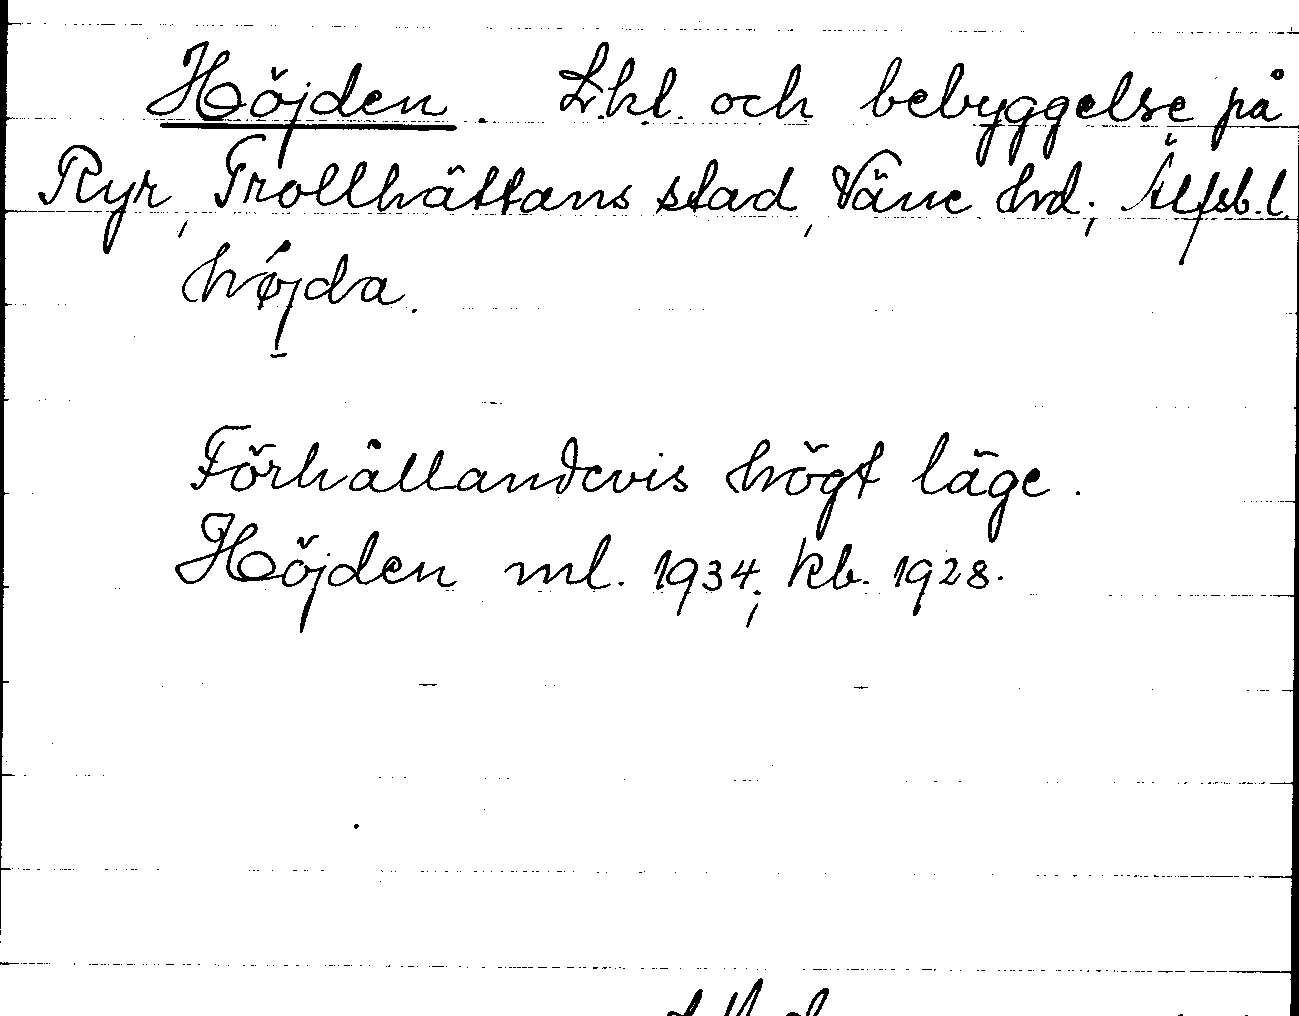 Höjden. L.kl. och bebyggelse på
Ryr, Trollhättans stad, Väne hd; Älfsb.l.
hǿjda.
Förhållandevis högt läge.
Höjden ml. 1934; kb. 1928.